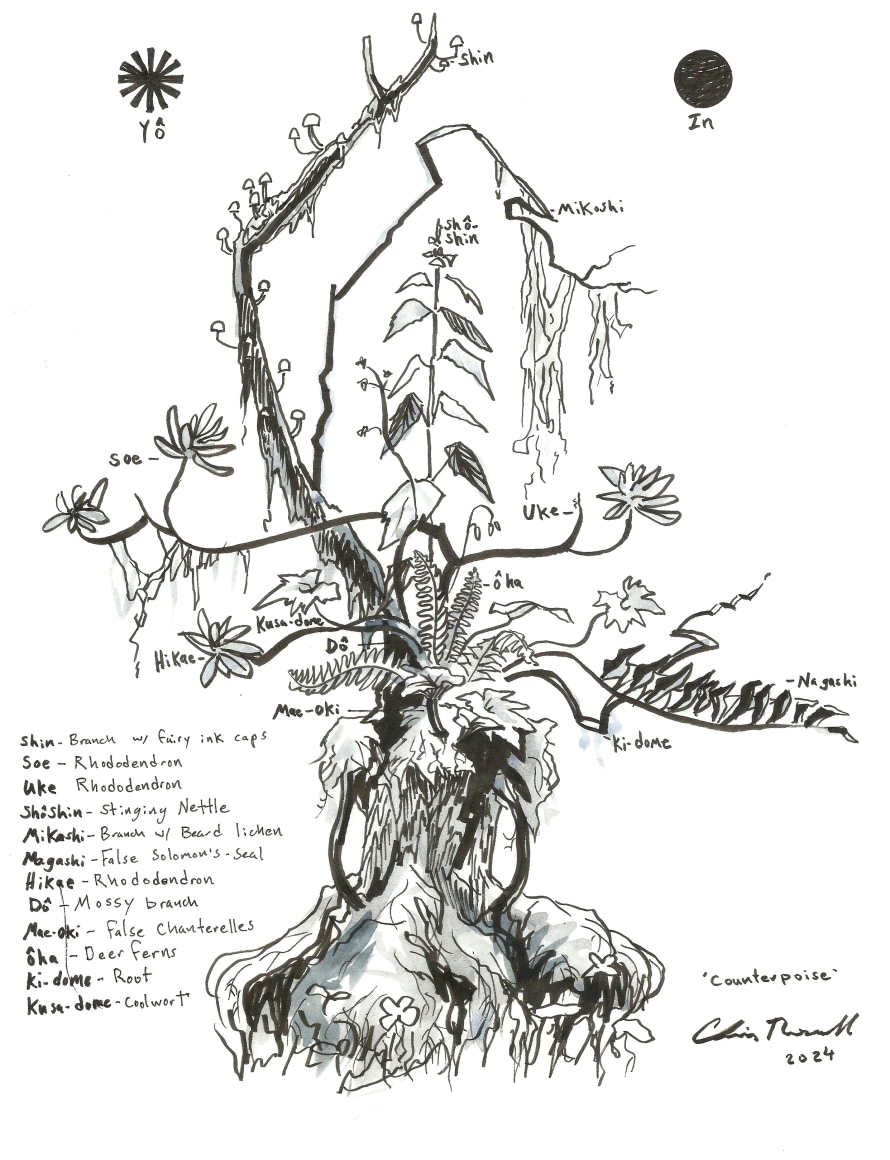 Yô
In
Shin
Mikoshi
Shô-
Shin
Soe
Uke
ôha
Kusa-dome
Dô
Hikae
Nagashi
Mae-oki
Ki-dome
Shin - Branch w/ fairy ink caps
Soe - Rhododendron
Uke Rhododendron
Shôshin - Stinging Nettle
Mikoshi - Branch w/ Beard lichen
Nagashi - False Solomon's-Seal
Hikae - Rhododendron
Dô - Mossy branch
Mae-oki - False Chanterelles
ôha - Deer ferns
Ki-dome - Root
Kusa-dome - Coolwort
"Counterpoise"
Chris
2024